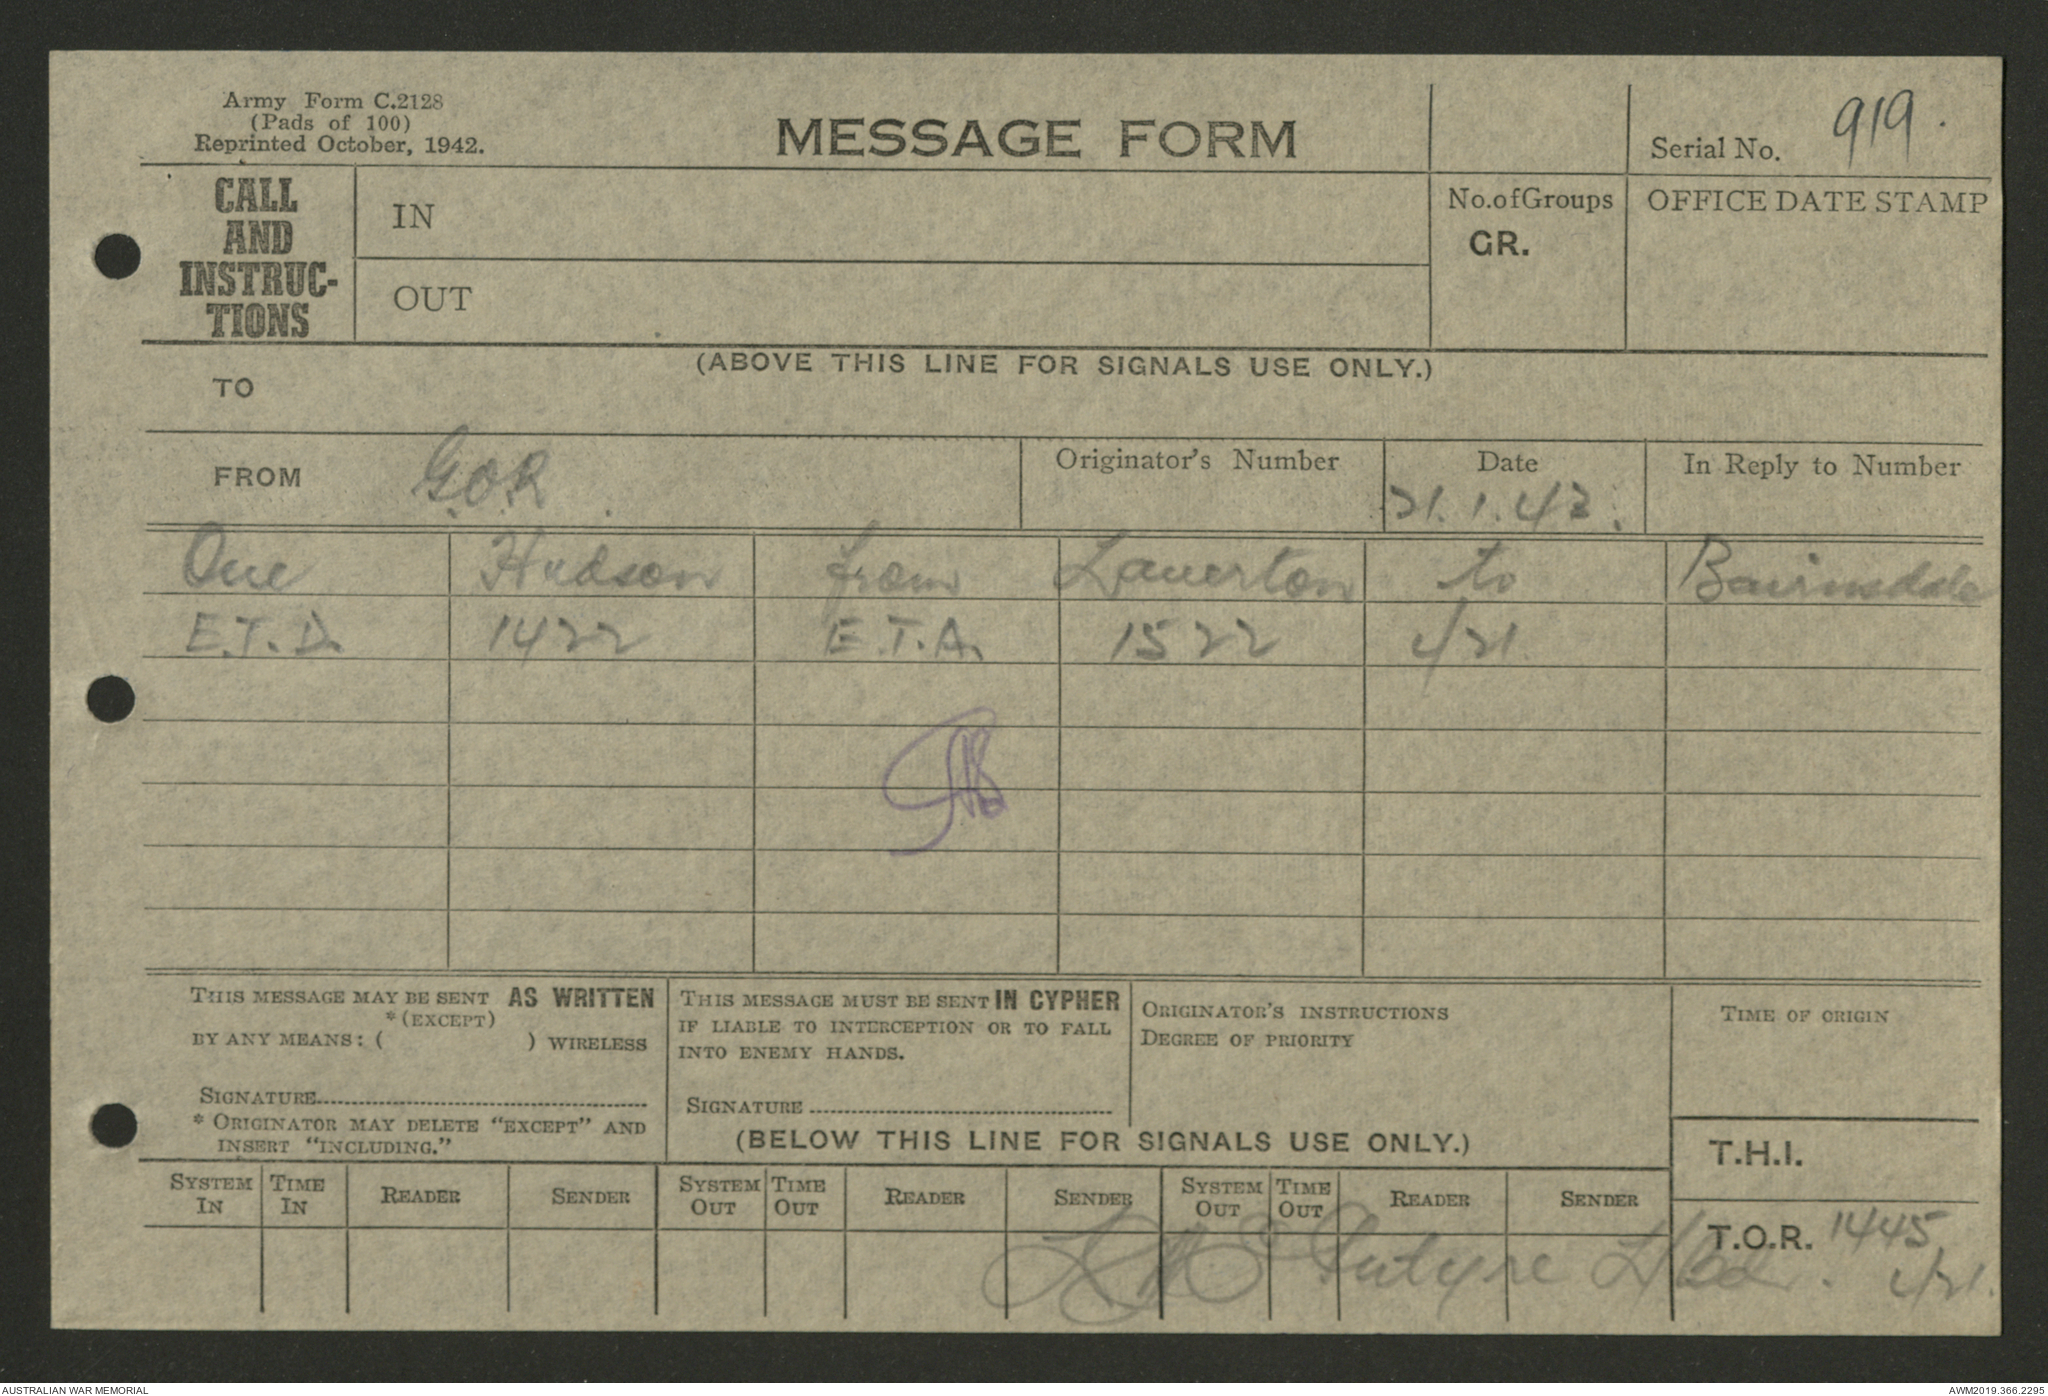 Army Form C.2128
(Pads of 100)
Reprinted October, 1942.
MESSAGE FORM
Serial No. 919.
CALL AND INSTRUC-TIONS
IN
OUT
No. of Groups
GR.
OFFICE DATE STAMP
(ABOVE THIS LINE FOR SIGNALS USE ONLY.)
TO
FROM G.O.R.
Originator's Number
Date 21.1.43.
In Reply to Number
One Hudson from Laverton to Bairnsdale
E.T.D. 1422 E.T.A. 1522 /21
THIS MESSAGE MAY BE SENT AS WRITTEN
*(EXCEPT)
BY ANY MEANS: ( ) WIRELESS
SIGNATURE
* ORIGINATOR MAY DELETE "EXCEPT" AND
INSERT "INCLUDING."
THIS MESSAGE MUST BE SENT IN CYPHER
IF LIABLE TO INTERCEPTION OR TO FALL
INTO ENEMY HANDS.
SIGNATURE
ORIGINATOR'S INSTRUCTIONS
DEGREE OF PRIORITY
TIME OF ORIGIN
(BELOW THIS LINE FOR SIGNALS USE ONLY.)
T.H.I.
SYSTEM IN TIME IN READER SENDER SYSTEM OUT TIME OUT READER SENDER SYSTEM OUT TIME OUT READER SENDER
T.O.R. 1445
McIntyre L/Bdr. /21.
AUSTRALIAN WAR MEMORIAL
AWM2019.366.2295